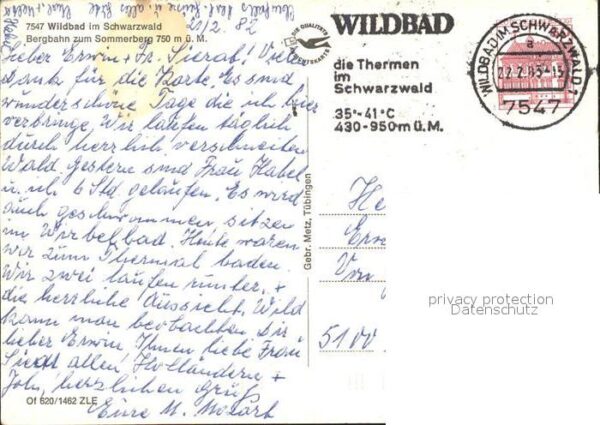 7547 Wildbad im Schwarzwald
Bergbahn zum Sommerberg 750 m ü. M.
22/2. 82
Lieber Erwin + Fr. Sierat! Viele
Dank für die Karte. Es sind
wunderschöne Tage die ich hier
verbringe. Wir laufen täglich
durch herrlich verschneiten
Wald. Gestern sind Frau Habel
u. ich 6 Std. gelaufen. Es wird
auch geschwommen sitzen
im Wirbelbad. Heute waren
wir zum Thermal baden.
Wir zwei laufen runter. +
die herrliche Aussicht. Wild
kann man beobachten. Dir
lieber Erwin Ihnen liebe Frau
allen Holländern +
John, herzlichen Gruß
Eure M.
Of 620/1462 ZLE
DIE QUALITÄTS
Gebr. Metz, Tübingen
WILDBAD
die Thermen
im
Schwarzwald
35°-41°C
430-950m ü.M.
WILDBAD IM SCHWARZWALD
a
22.2.
7547
He
Erw
5100
privacy protection
Datenschutz